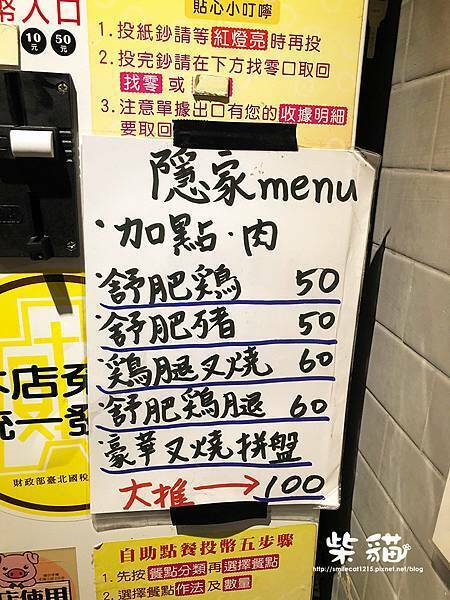 貼心小叮嚀
幣入口
10元 50元
1.投紙鈔請等 紅燈亮 時再投
2.投完鈔請在下方找零口取回
找零 或
3.注意單據出口有您的 收據明細
要取回
隱家menu
·加點·肉
·舒肥鶏 50
·舒肥豬 50
·鶏腿叉燒 60
·舒肥鶏腿 60
·豪華叉燒拼盤
大推→100
本店
統一發
財政部臺北國稅
自助點餐投幣五步驟
1.先按 餐點分類 再選擇餐點
2.選擇餐點 作法 及 數量
店使用
柴貓
http://smilecat1215.pixnet.net/blog